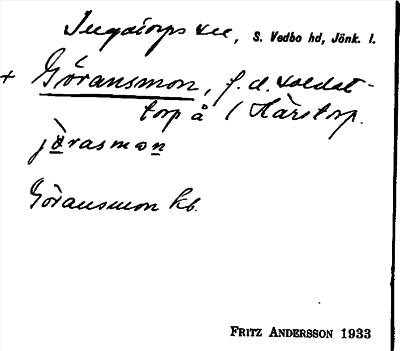 Ingatorps sn, S. Vedbo hd, Jönk. l.
+ Göransmon, f. d. soldat-
torp å Härstorp.
jö̀rasmon
Göransmon kb.
FRITZ ANDERSSON 1933